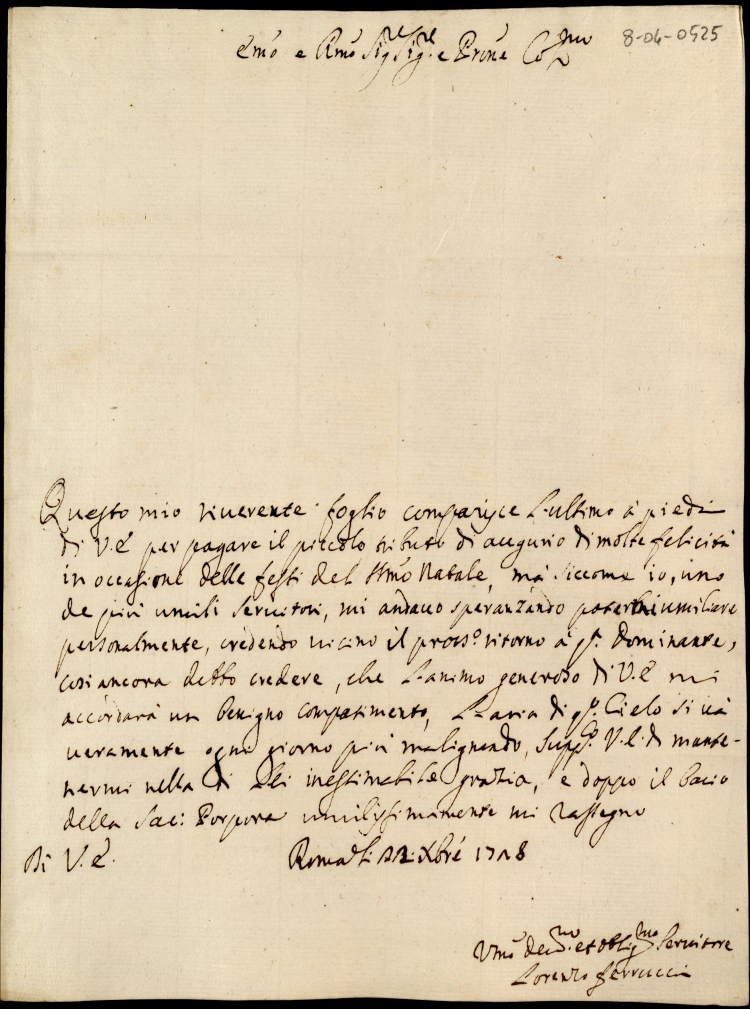 Emo e Rmo Sigre Sigre e Prone Colmo
8-04-0525
Questo mio riverente foglio comparisce l'ultimo à piedi
di V.E. per pagare il piccolo tributo di augurio di molte felicità
in occasione delle festi del SSmo Natale, mà siccome io, uno
de più umili servitori, mi andavo speranzando potermi umiliare
personalmente, credendo vicino il pross.o ritorno à q.ta Dominante,
così ancora debbo credere, che l'animo generoso di V.E. mi
accorderà un benigno compatimento, L'aria di q.to Cielo si và
veramente ogni giorno più malignando, supp.co V.E. di mante-
nermi nella di Lei inestimabile grazia, e doppo il bacio
della Sac: Porpora umilissimamente mi rassegno
Di V.E. Roma li 22 Xbre 1728
Vmo devmo et obligmo Servitore
Lorenzo Ferrucci